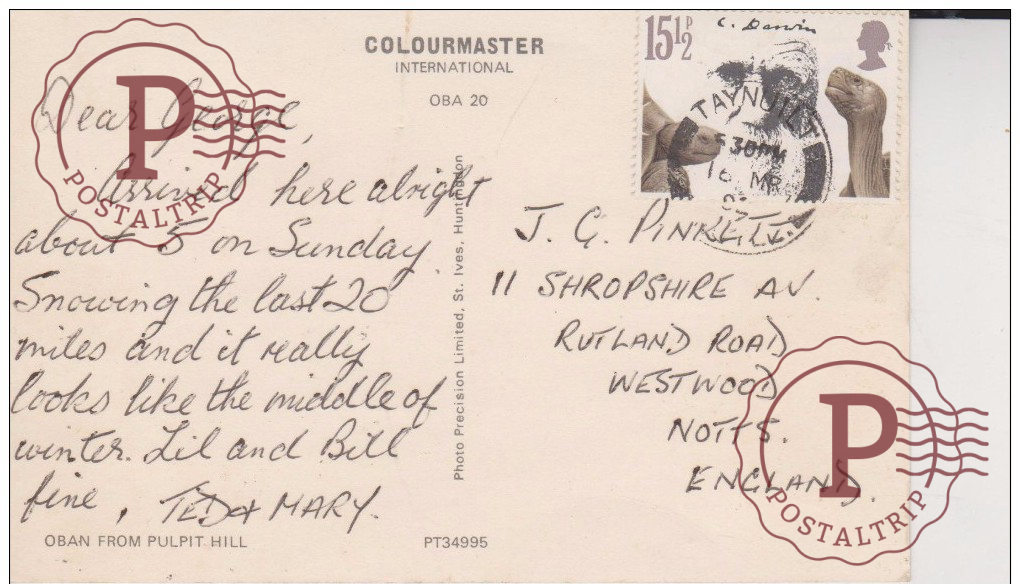 COLOURMASTER
INTERNATIONAL
OBA 20
15½P
C. Darwin
TAYNUILT
30PM
16 MR
Dear George,
Arrived here alright
about 5 on Sunday.
Snowing the last 20
miles and it really
looks like the middle of
winter. Lil and Bill
fine, TED & MARY.
Photo Precision Limited, St. Ives, Huntingdon
J. G. PINKETT
11 SHROPSHIRE AV.
RUTLAND ROAD
WESTWOOD
NOTTS.
ENGLAND.
OBAN FROM PULPIT HILL
PT34995
P
POSTALTRIP
P
POSTALTRIP